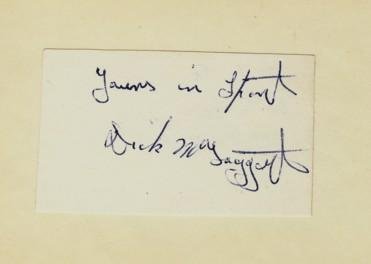 Yours in Sport
Dick McTaggart